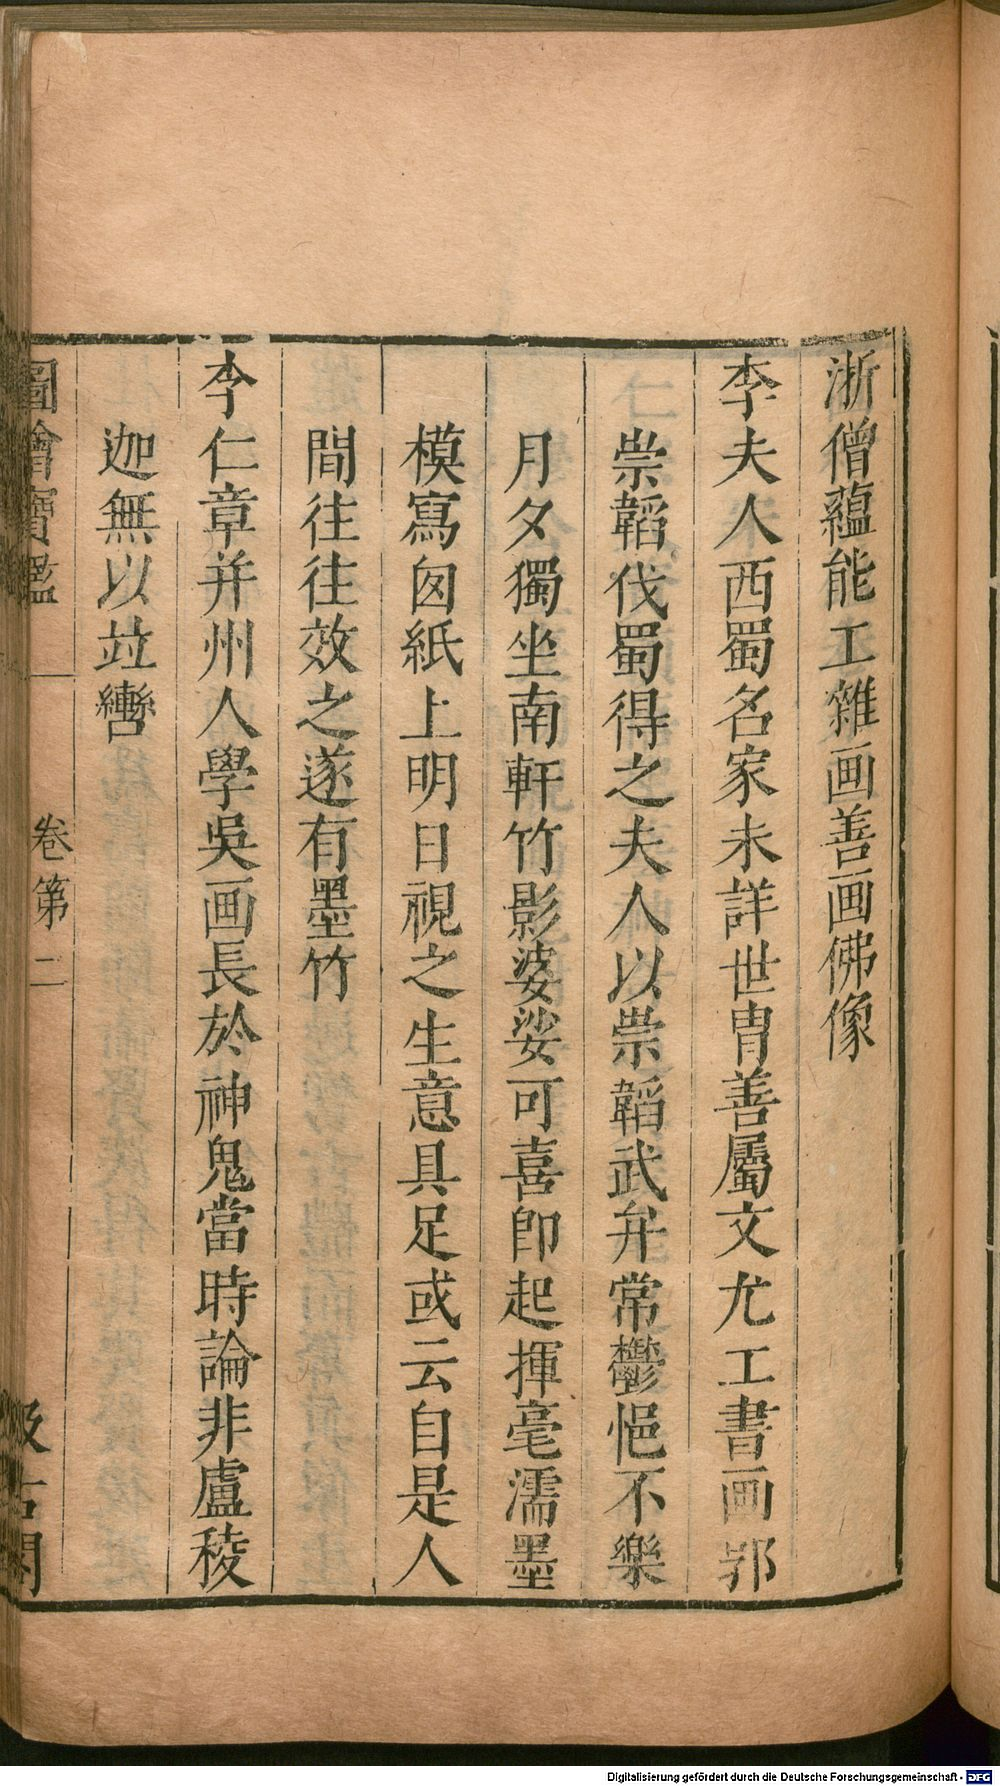 浙僧蘊能工雜画善画佛像
李夫人西蜀名家未詳世胄善屬文尤工書画郭
崇韜伐蜀得之夫人以崇韜武弁常鬱悒不樂
月夕獨坐南軒竹影婆娑可喜即起揮毫濡墨
模寫囱紙上明日視之生意具足或云自是人
間往往效之遂有墨竹
李仁章并州人學吳画長於神鬼當時論非盧稜
迦無以竝轡
圖繪寶鑑
卷第二
汲古閣
Digitalisierung gefördert durch die Deutsche Forschungsgemeinschaft - DFG